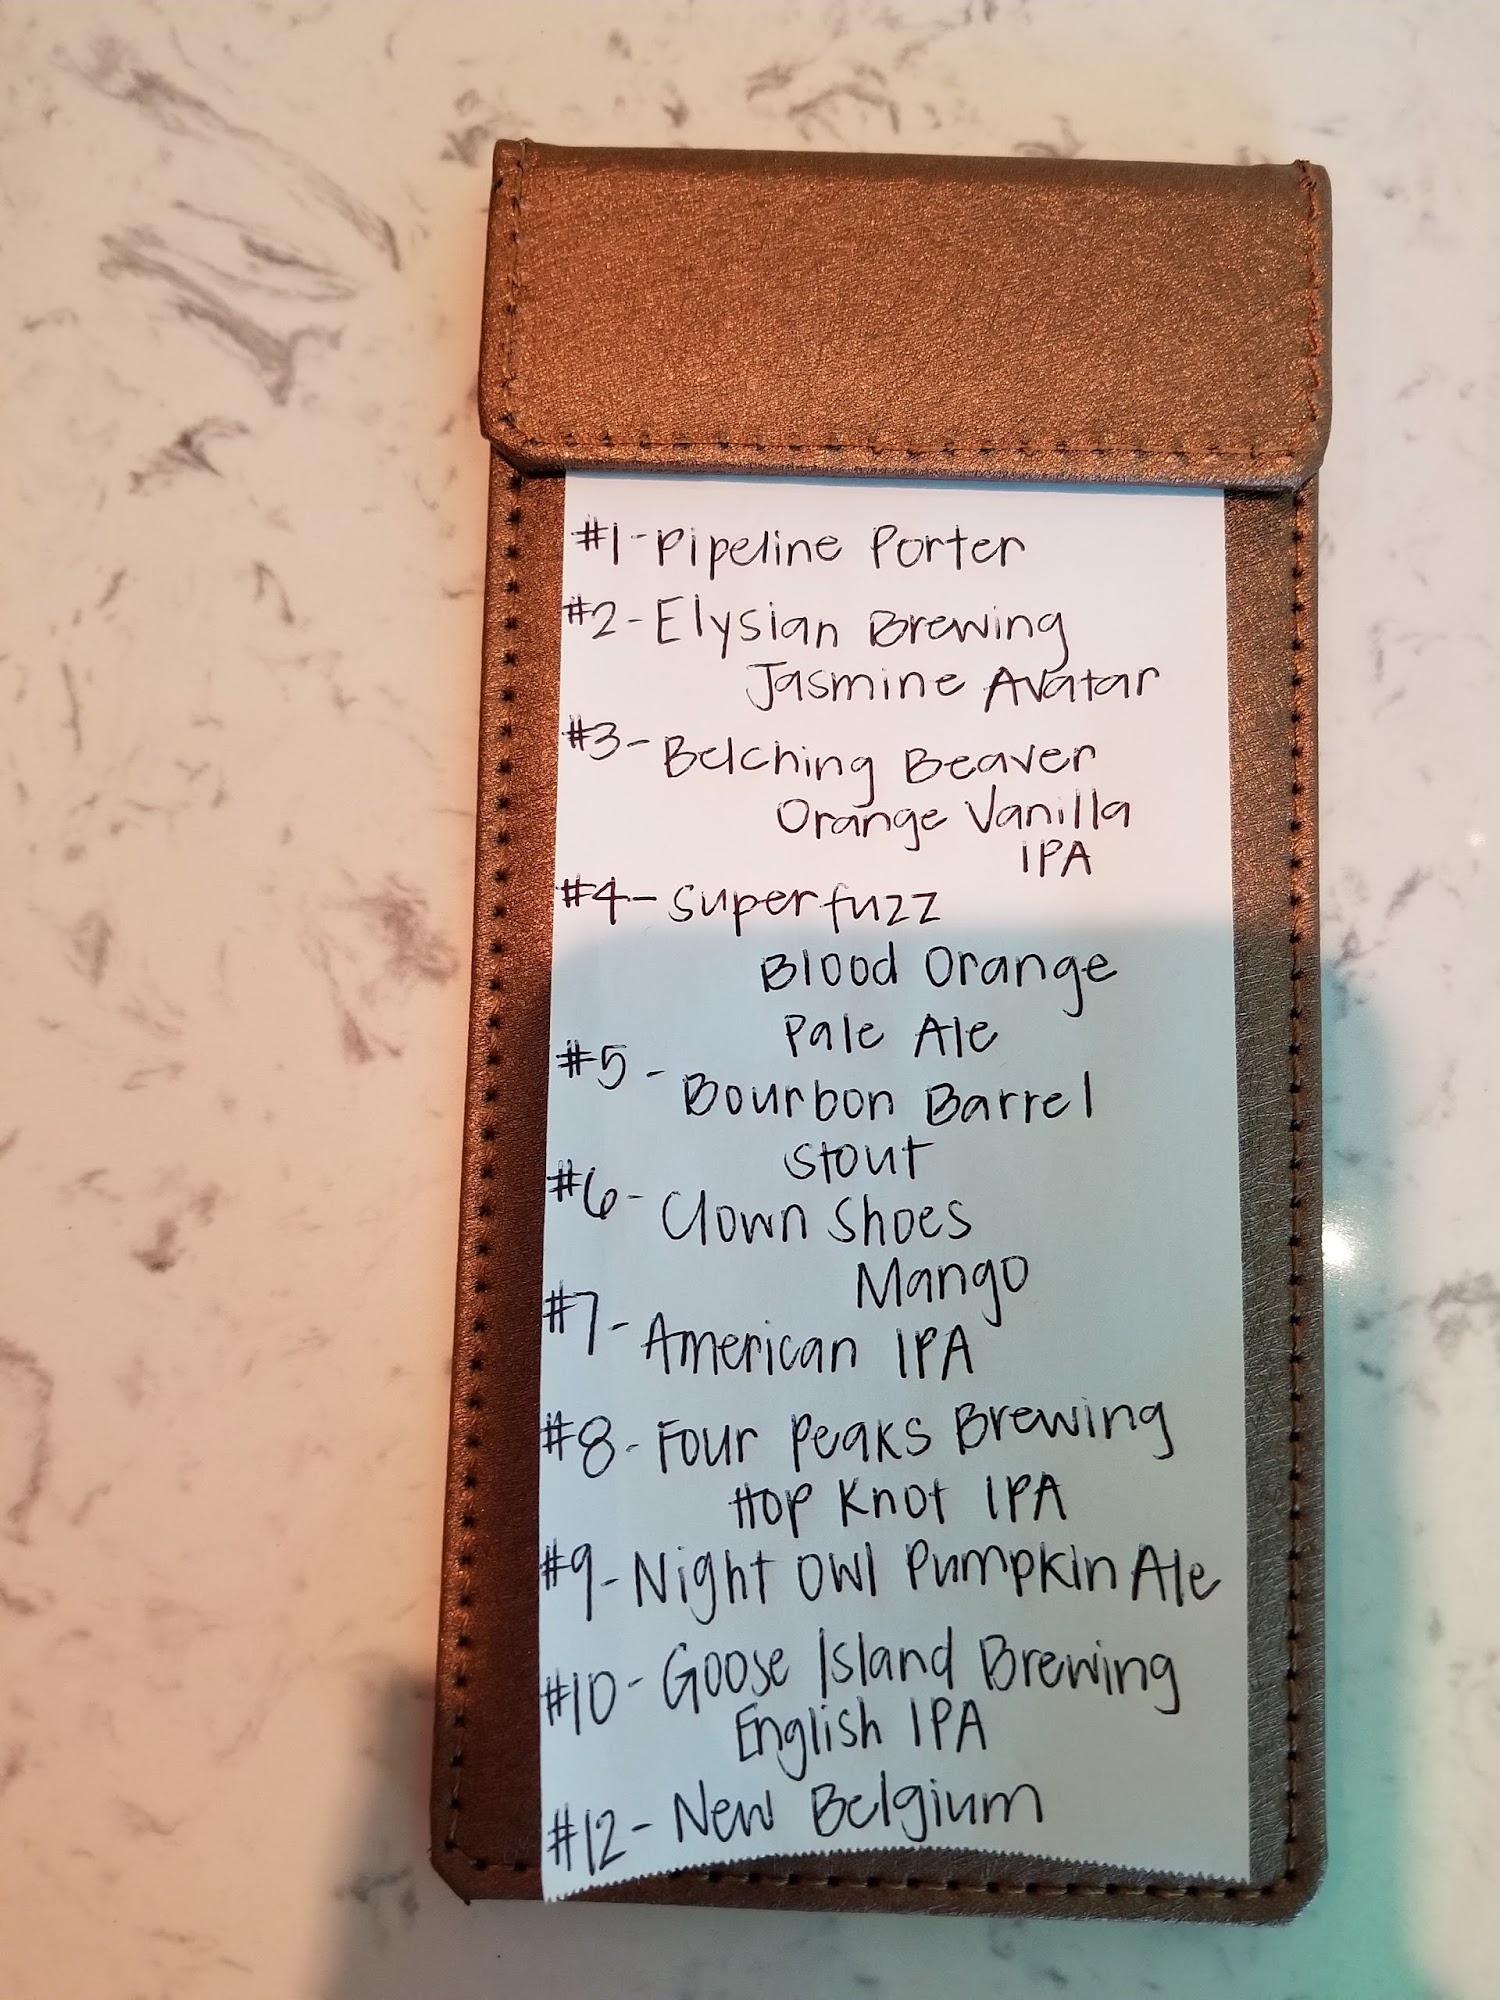 #1-Pipeline Porter
#2-Elysian Brewing
Jasmine Avatar
#3-Belching Beaver
Orange Vanilla
IPA
#4-Superfuzz
Blood Orange
Pale Ale
#5-Bourbon Barrel
Stout
#6-Clown Shoes
Mango
#7-American IPA
#8-Four Peaks Brewing
Hop Knot IPA
#9-Night Owl Pumpkin Ale
#10-Goose Island Brewing
English IPA
#12-New Belgium